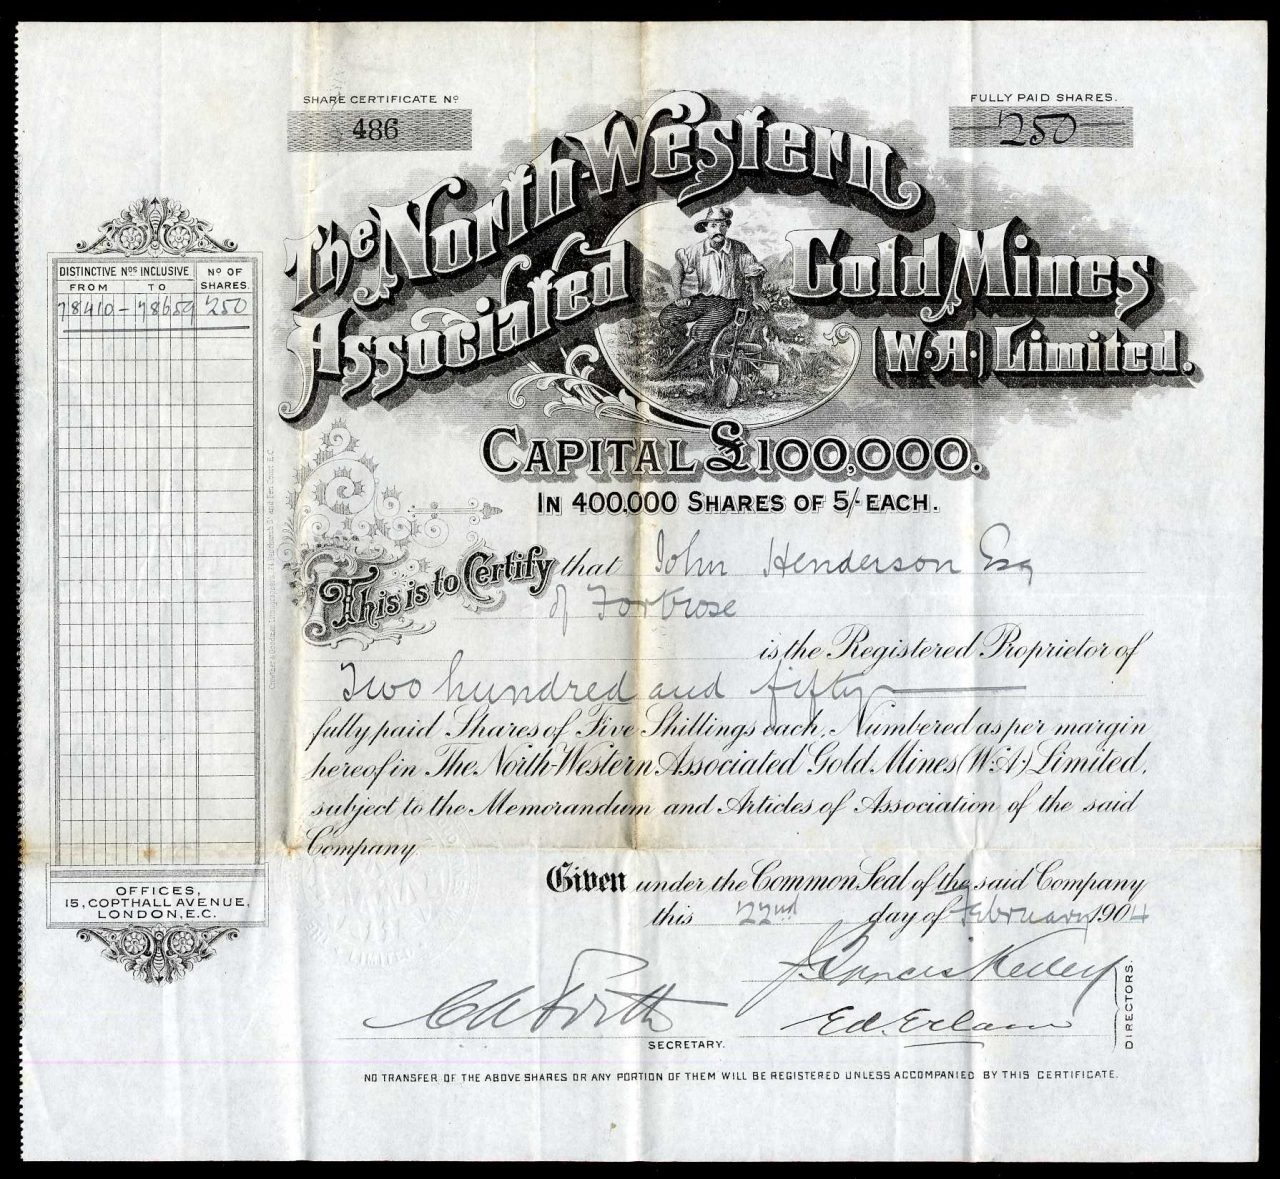 SHARE CERTIFICATE No
486
FULLY PAID SHARES.
250
The North-Western
Associated Gold Mines
(W.A.) Limited.
CAPITAL £100,000.
IN 400,000 SHARES OF 5/- EACH.
DISTINCTIVE Nos INCLUSIVE
No OF SHARES.
FROM TO
78410 - 78659 250
This is to Certify that John Henderson Esq
of Fortrose
is the Registered Proprietor of
Two hundred and fifty
fully paid Shares of Five Shillings each, Numbered as per margin
hereof in The North-Western Associated Gold Mines (W.A.) Limited,
subject to the Memorandum and Articles of Association of the said
Company.
Given under the Common Seal of the said Company
this 22nd day of February 1904
OFFICES,
15, COPTHALL AVENUE,
LONDON, E.C.
DIRECTORS.
SECRETARY.
NO TRANSFER OF THE ABOVE SHARES OR ANY PORTION OF THEM WILL BE REGISTERED UNLESS ACCOMPANIED BY THIS CERTIFICATE.